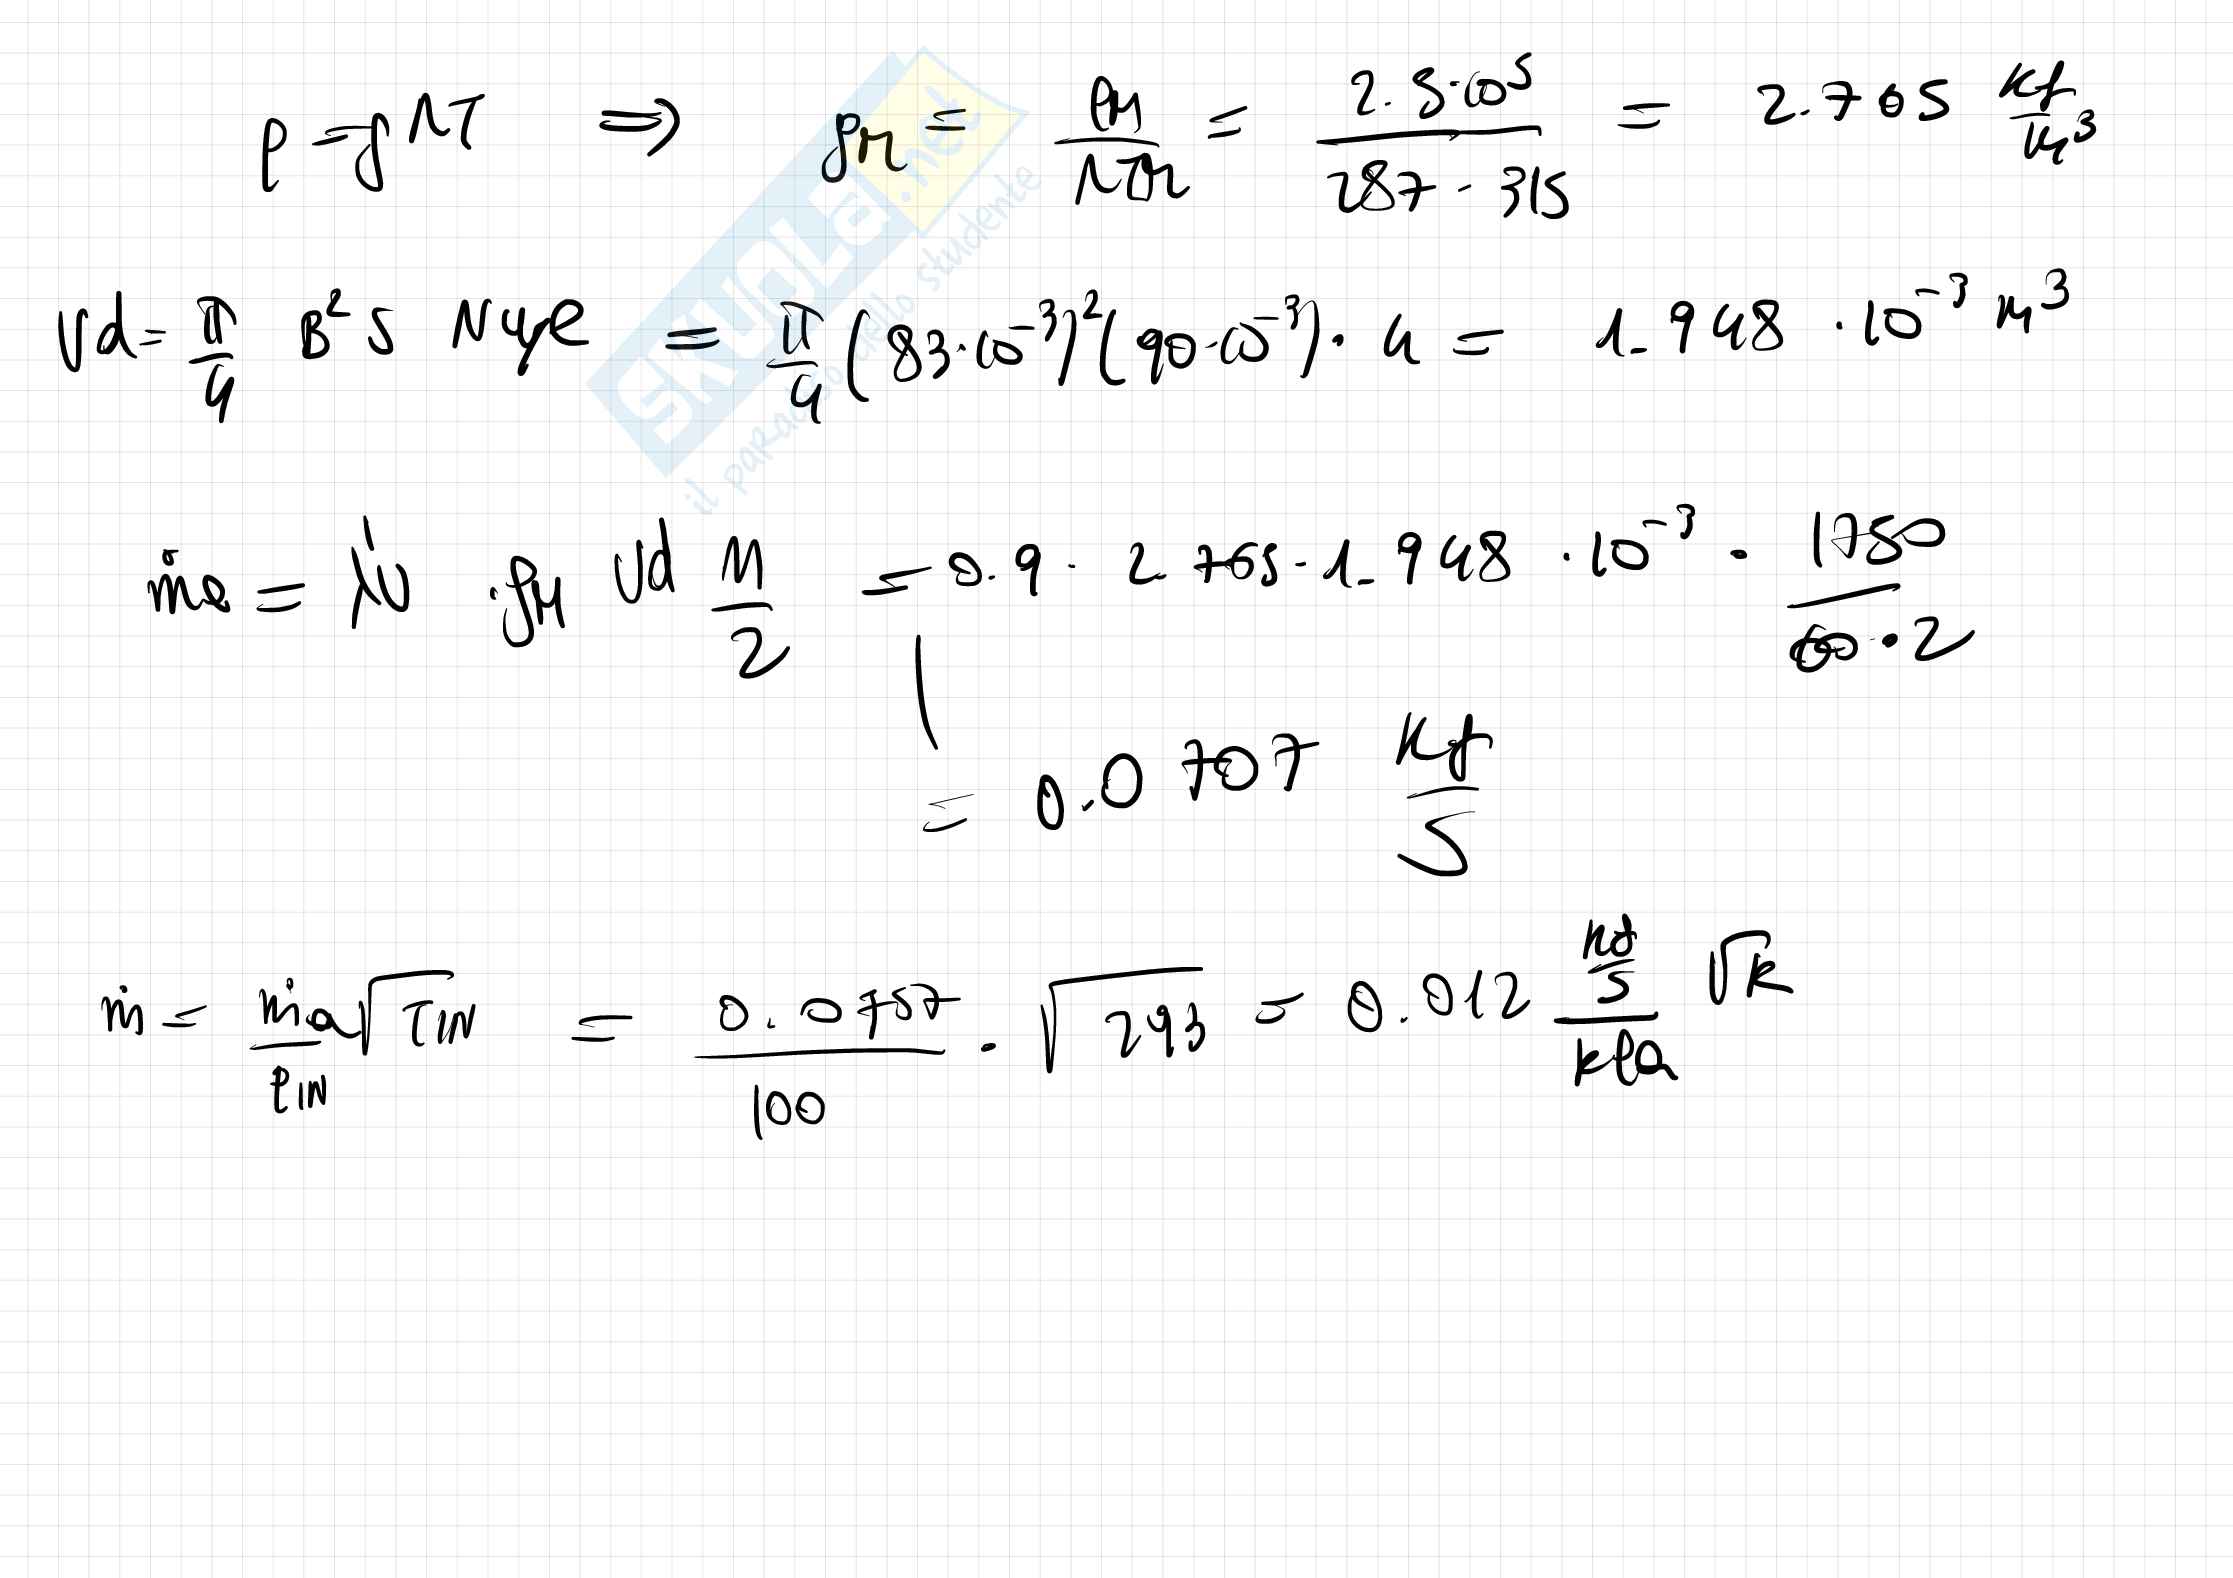 p = ρ r T ⇒ ρM = pM / r TM = 2.5·10^5 / 287 · 315 = 2.765 kg/m^3
Vd = π/4 B^2 S Ncyl = π/4 (83·10^-3)^2 (90·10^-3) · 4 = 1.948 · 10^-3 m^3
ṁa = λv · ρM Vd n/2 = 0.9 · 2.765 · 1.948 · 10^-3 · 1750 / 60 · 2
= 0.0707 kg/s
ṁ = ṁa √TIN / pIN = 0.0707 / 100 · √293 = 0.012 kg/s / kPa √K
SKUOLA.net
il paradiso dello studente